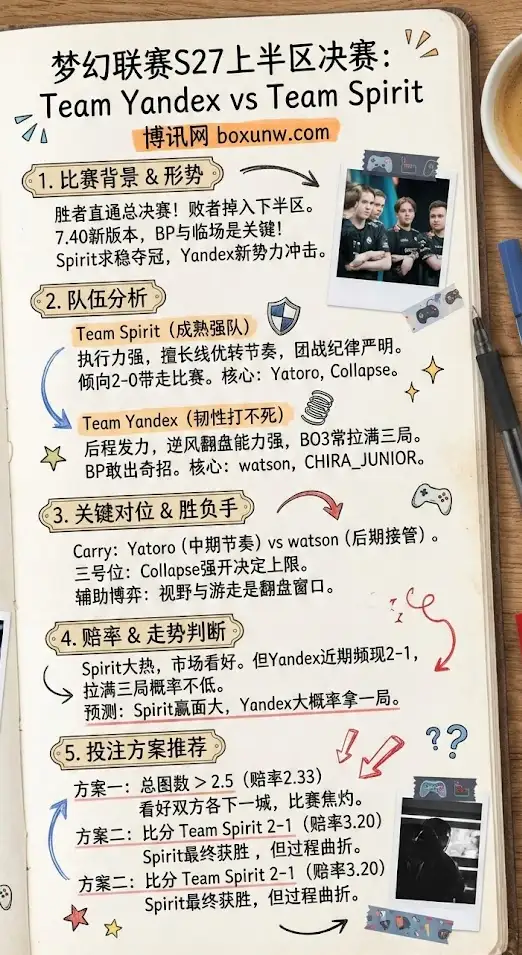 梦幻联赛S27上半区决赛：
Team Yandex vs Team Spirit
博讯网 boxunw.com
1. 比赛背景 & 形势
胜者直通总决赛！败者掉入下半区。
7.40新版本，BP与临场是关键！
Spirit求稳夺冠，Yandex新势力冲击。
2. 队伍分析
Team Spirit（成熟强队）
执行力强，擅长线优转节奏，团战纪律严明。
倾向2-0带走比赛。核心：Yatoro, Collapse。
Team Yandex（韧性打不死）
后程发力，逆风翻盘能力强，BO3常拉满三局。
BP敢出奇招。核心：watson, CHIRA_JUNIOR。
3. 关键对位 & 胜负手
Carry：Yatoro（中期节奏）vs watson（后期接管）。
三号位：Collapse强开决定上限。
辅助博弈：视野与游走是翻盘窗口。
4. 赔率 & 走势判断
Spirit大热，市场看好。但Yandex近期频现2-1，
拉满三局概率不低。
预测：Spirit赢面大，Yandex大概率拿一局。
5. 投注方案推荐
方案一：总图数 > 2.5（赔率2.33）
看好双方各下一城，比赛焦灼。
方案二：比分 Team Spirit 2-1（赔率3.20）
Spirit最终获胜，但过程曲折。
方案二：比分 Team Spirit 2-1（赔率3.20）
Spirit最终获胜，但过程曲折。
??